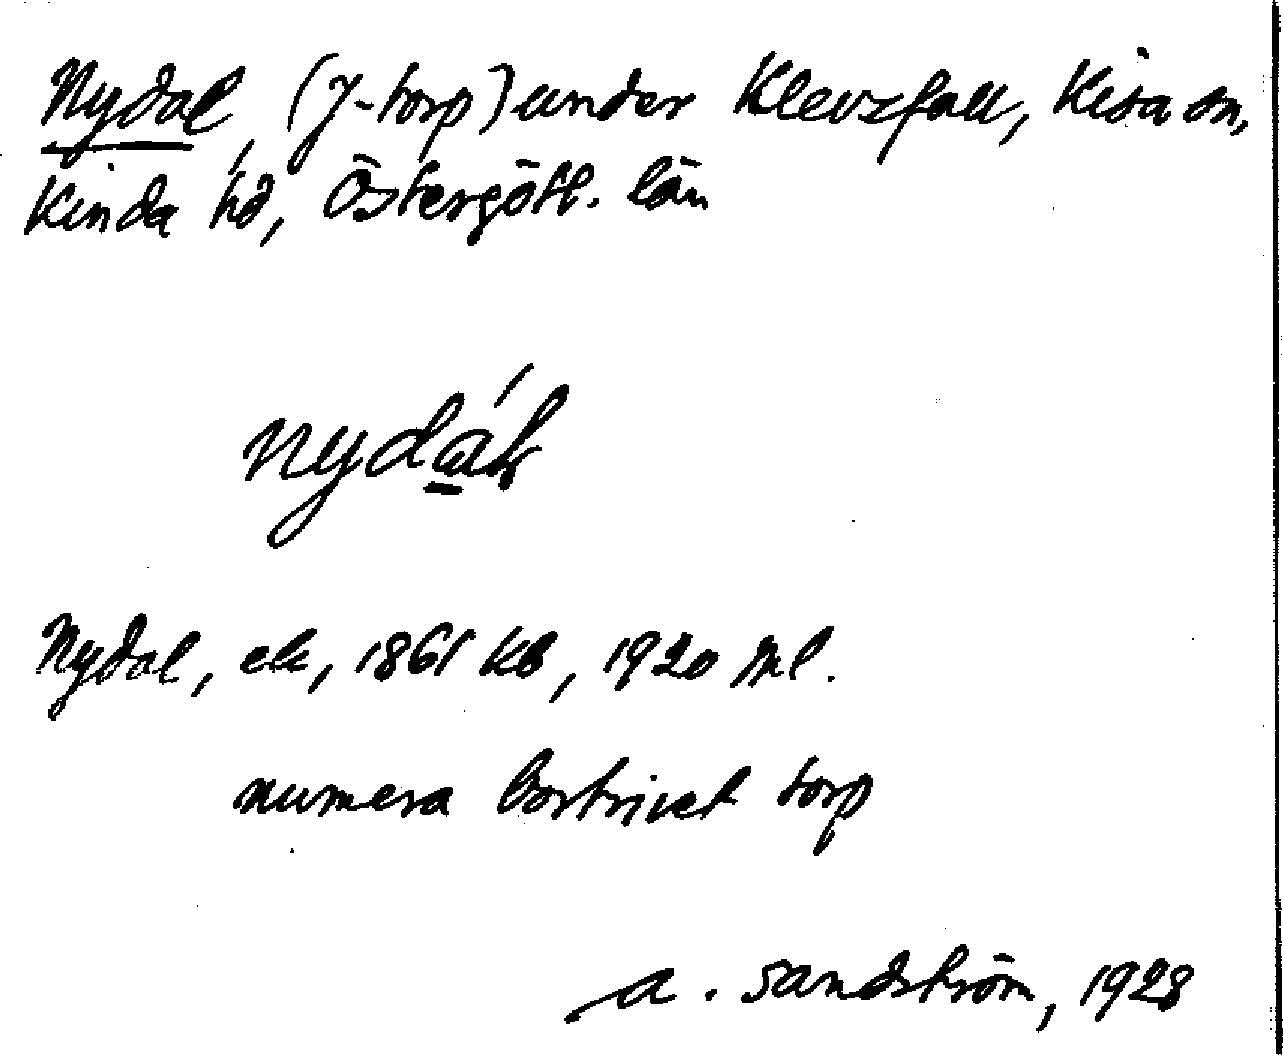 Nydal, (f-torp) under Klevsfall, Kisa sn,
Kinda hd, Östergötl. län
nydál
Nydal, ek, 1861 kb, 1920 Ml.
numera bortrivet torp
A. Sandström, 1928